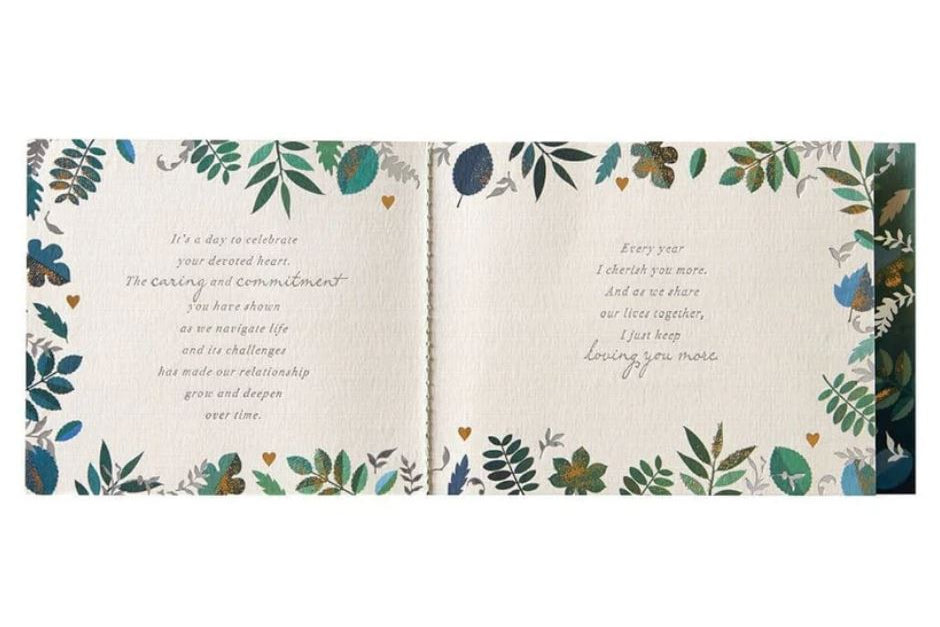 It's a day to celebrate
your devoted heart.
The caring and commitment
you have shown
as we navigate life
and its challenges
has made our relationship
grow and deepen
over time.
Every year
I cherish you more.
And as we share
our lives together,
I just keep
loving you more.